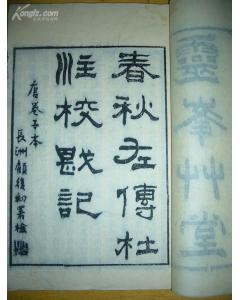 Kongfz.com
春秋左傳杜
注校戡記
唐卷子本
長洲顧復初署檢
靈峯艸堂